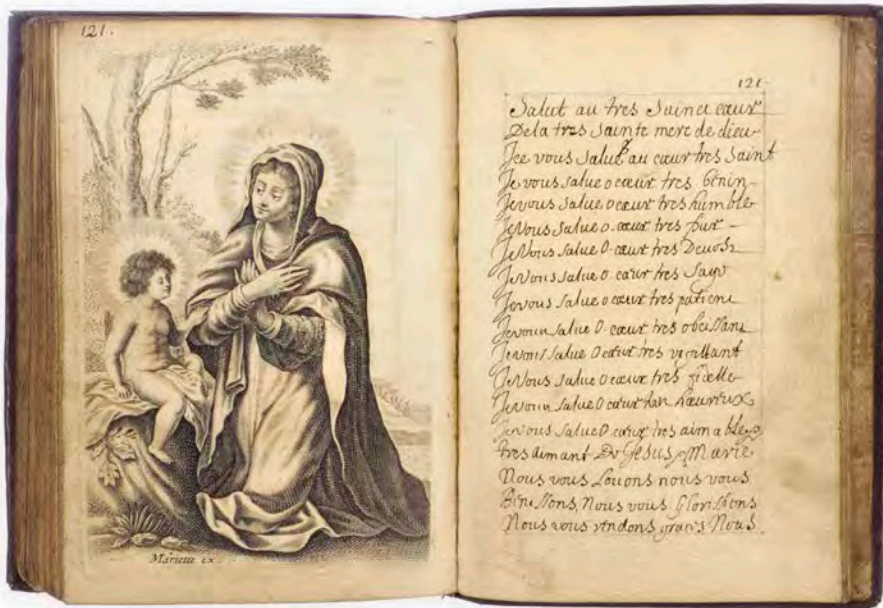 121.
Mariette ex.
121.
Salut au tres Sainct cœur
De la tres Sainte mere de dieu
Jee vous Salue au cœur tres Saint
Je vous salue o cœur tres benin
Je vous salue o cœur tres humble
Je Vous salue o cœur tres pur
Je Vous salue O cœur tres Devost
Je Vous salue o cœur tres Sage
Je vous salue o cœur tres patient
Je vous salue O cœur tres obeissant
Je vous salue O cœur tres vigillant
Je Vous salue O cœur tres fidelle
Je vous salue O cœur tres hœureux
Je vous salue O cœur tres aimable &
tres aimant De Jesus & Marie
Nous vous Louons nous vous
Benissons, Nous vous Glorifions
Nous vous rendons graces Nous